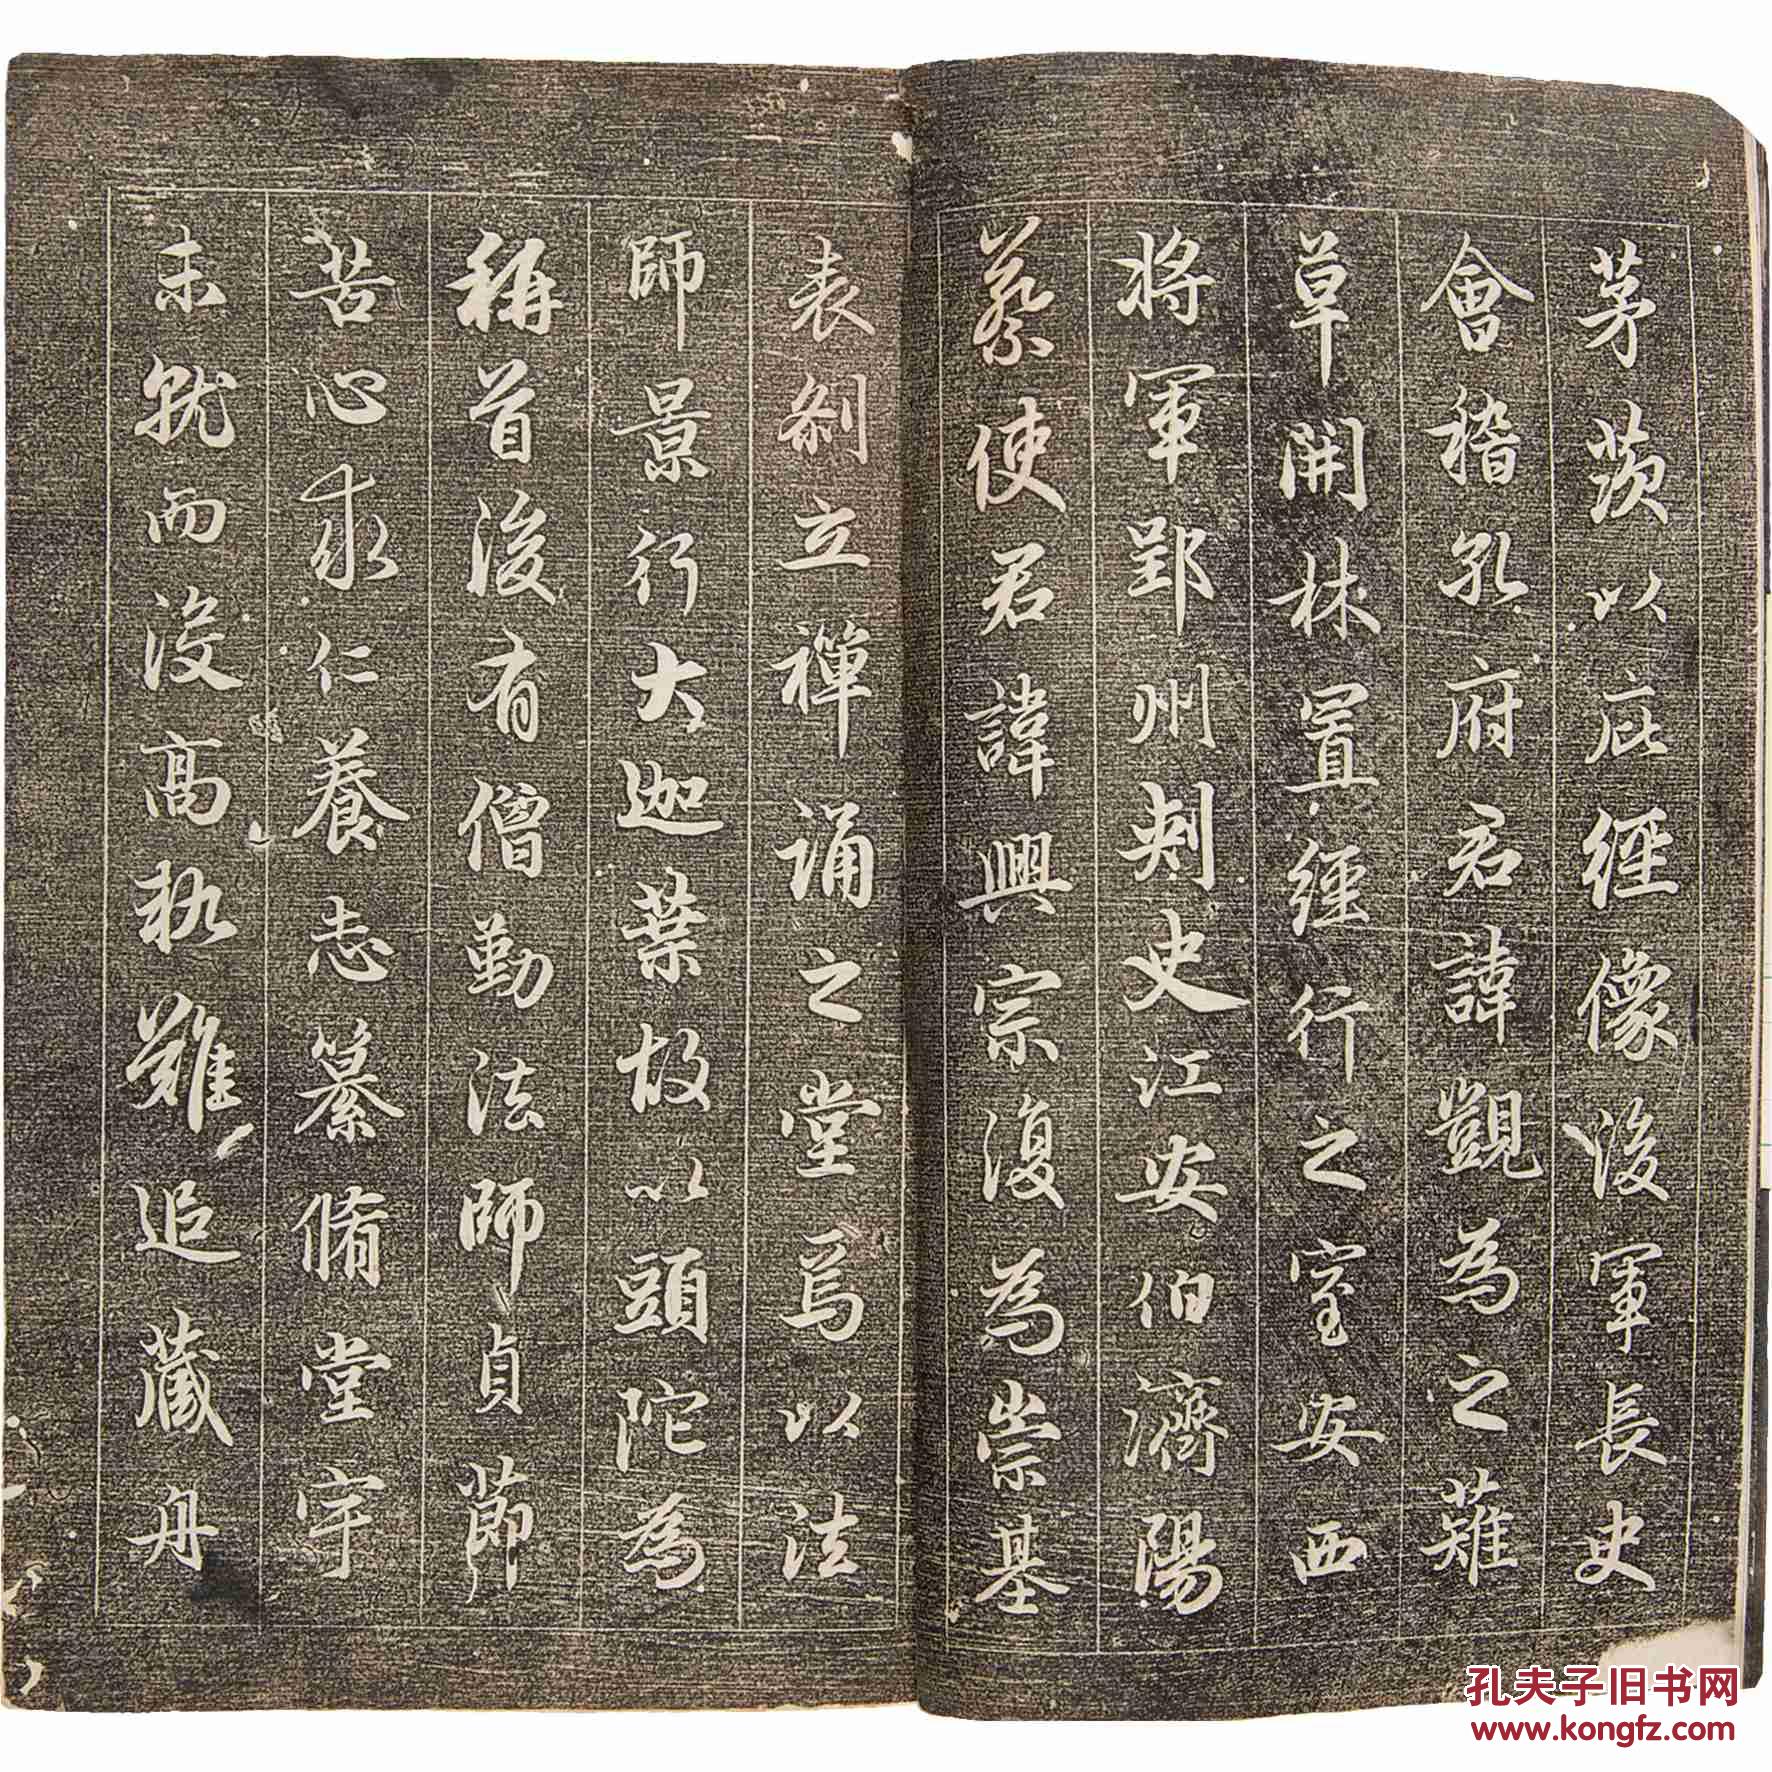 茅茨以庇經像後軍長史
會稽孔府君諱覬為之薙
草開林置經行之室安西
將軍郢州刺史江安伯濟陽
蔡使君諱興宗復為崇基
表剎立禪誦之堂焉以法
師景行大迦葉故以頭陀為
稱首後有僧勤法師貞節
苦心求仁養志纂脩堂宇
未就而沒高軌難追藏舟
孔夫子旧书网
www.kongfz.com